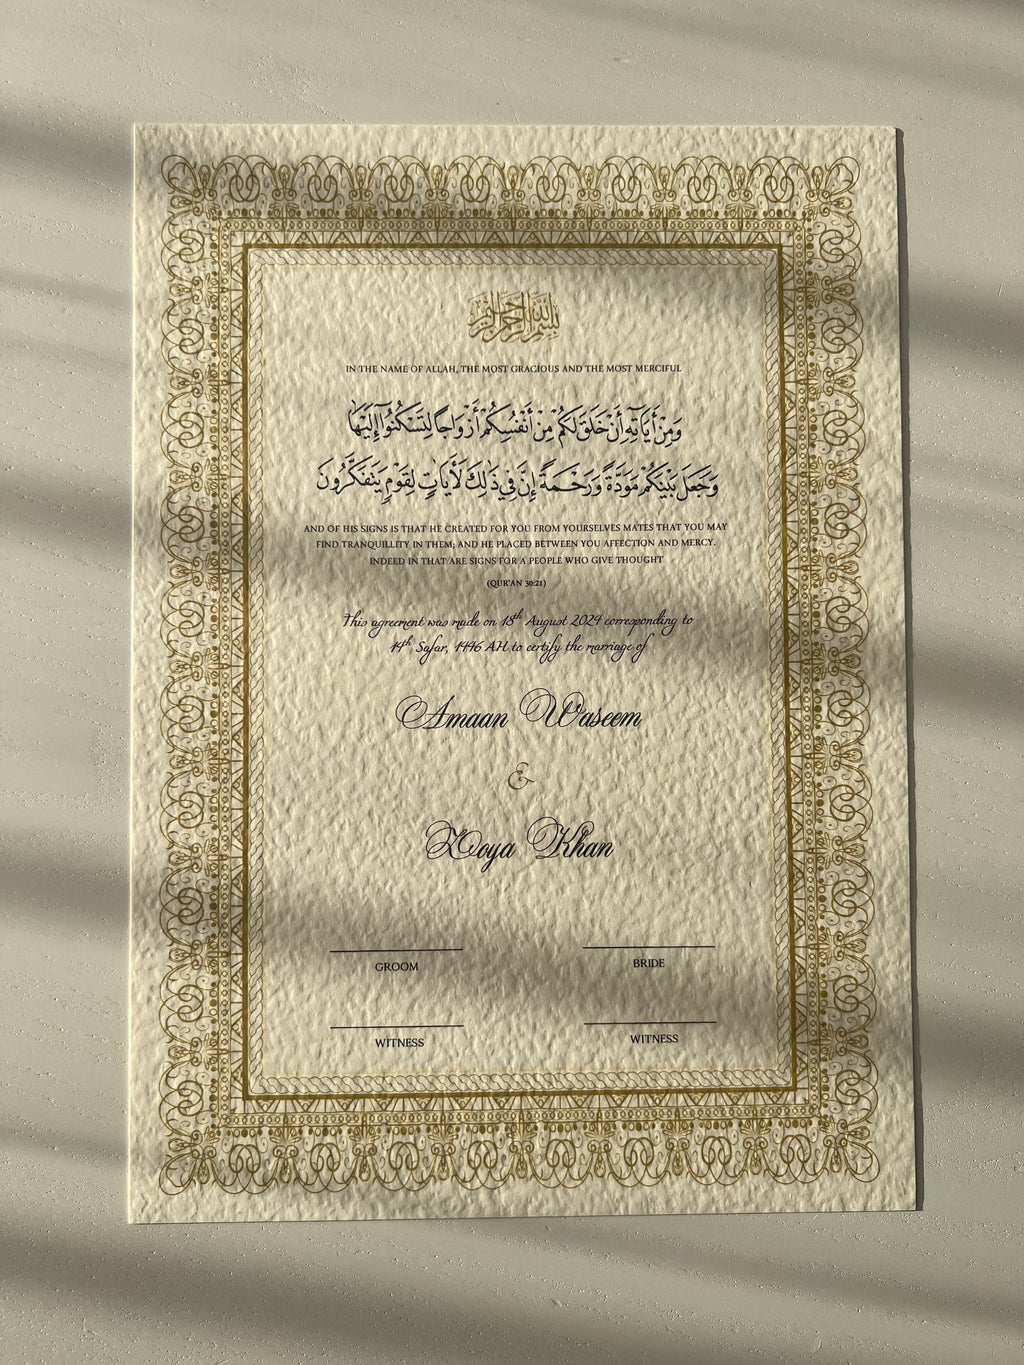 بسم الله الرحمن الرحيم
IN THE NAME OF ALLAH, THE MOST GRACIOUS AND THE MOST MERCIFUL
وَمِنْ أَيَاتِهِ أَنْ خَلَقَ لَكُمْ مِنْ أَنْفُسِكُمْ أَزْوَاجًا لِتَسْكُنُوا إِلَيْهَا
وَجَعَلَ بَيْنَكُمْ مَوَدَّةً وَرَحْمَةً إِنَّ فِي ذَلِكَ لَأَيَاتٍ لِقَوْمٍ يَتَفَكَّرُونَ
AND OF HIS SIGNS IS THAT HE CREATED FOR YOU FROM YOURSELVES MATES THAT YOU MAY
FIND TRANQUILLITY IN THEM; AND HE PLACED BETWEEN YOU AFFECTION AND MERCY.
INDEED IN THAT ARE SIGNS FOR A PEOPLE WHO GIVE THOUGHT
(QUR'AN 30:21)
This agreement was made on 18th August 2024 corresponding to
14th Safar, 1446 AH to certify the marriage of
Amaan Waseem
&
Zoya Khan
GROOM BRIDE
WITNESS WITNESS